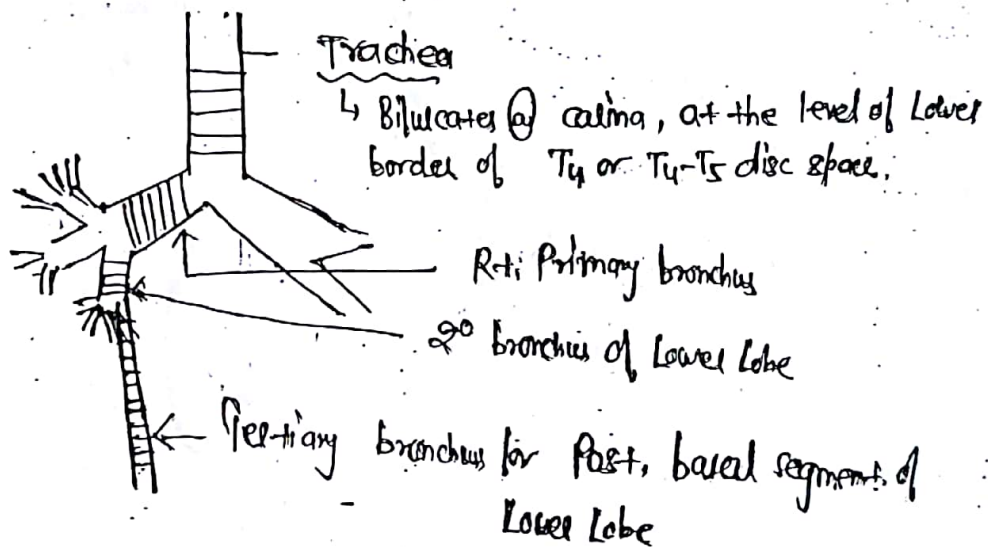 Trachea
↳ Bifurcates @ carina, at the level of Lower
border of T4 or T4-T5 disc space.
Rt; Primary bronchus
2° bronchus of Lower Lobe
Tertiary bronchus for Post. basal segment of
Lower Lobe